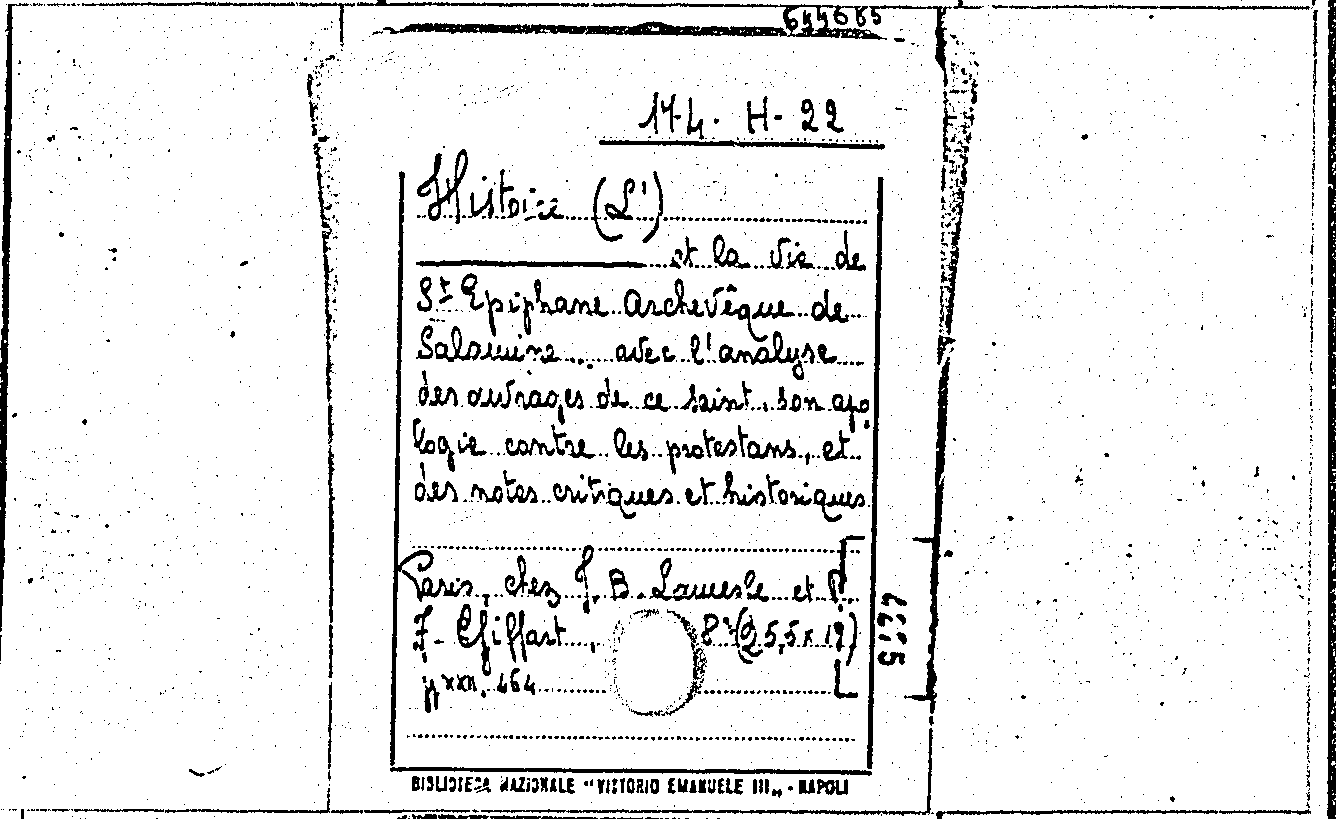 644685
174. H- 22
Histoire (L')
et la vie de
St Epiphane Archevêque de
Salamine... avec l'analyse
des ouvrages de ce saint, son apo
logie contre les protestans, et
des notes critiques et historiques
Paris, chez J. B. Lamesle et P.
F. Giffart, 8° (25,5x19)
pp XXII, 464
BIBLIOTECA NAZIONALE "VITTORIO EMANUELE III„ - NAPOLI